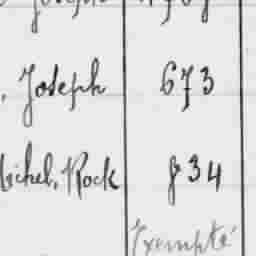 , Joseph 673
Michel, Rock 834
Exempté